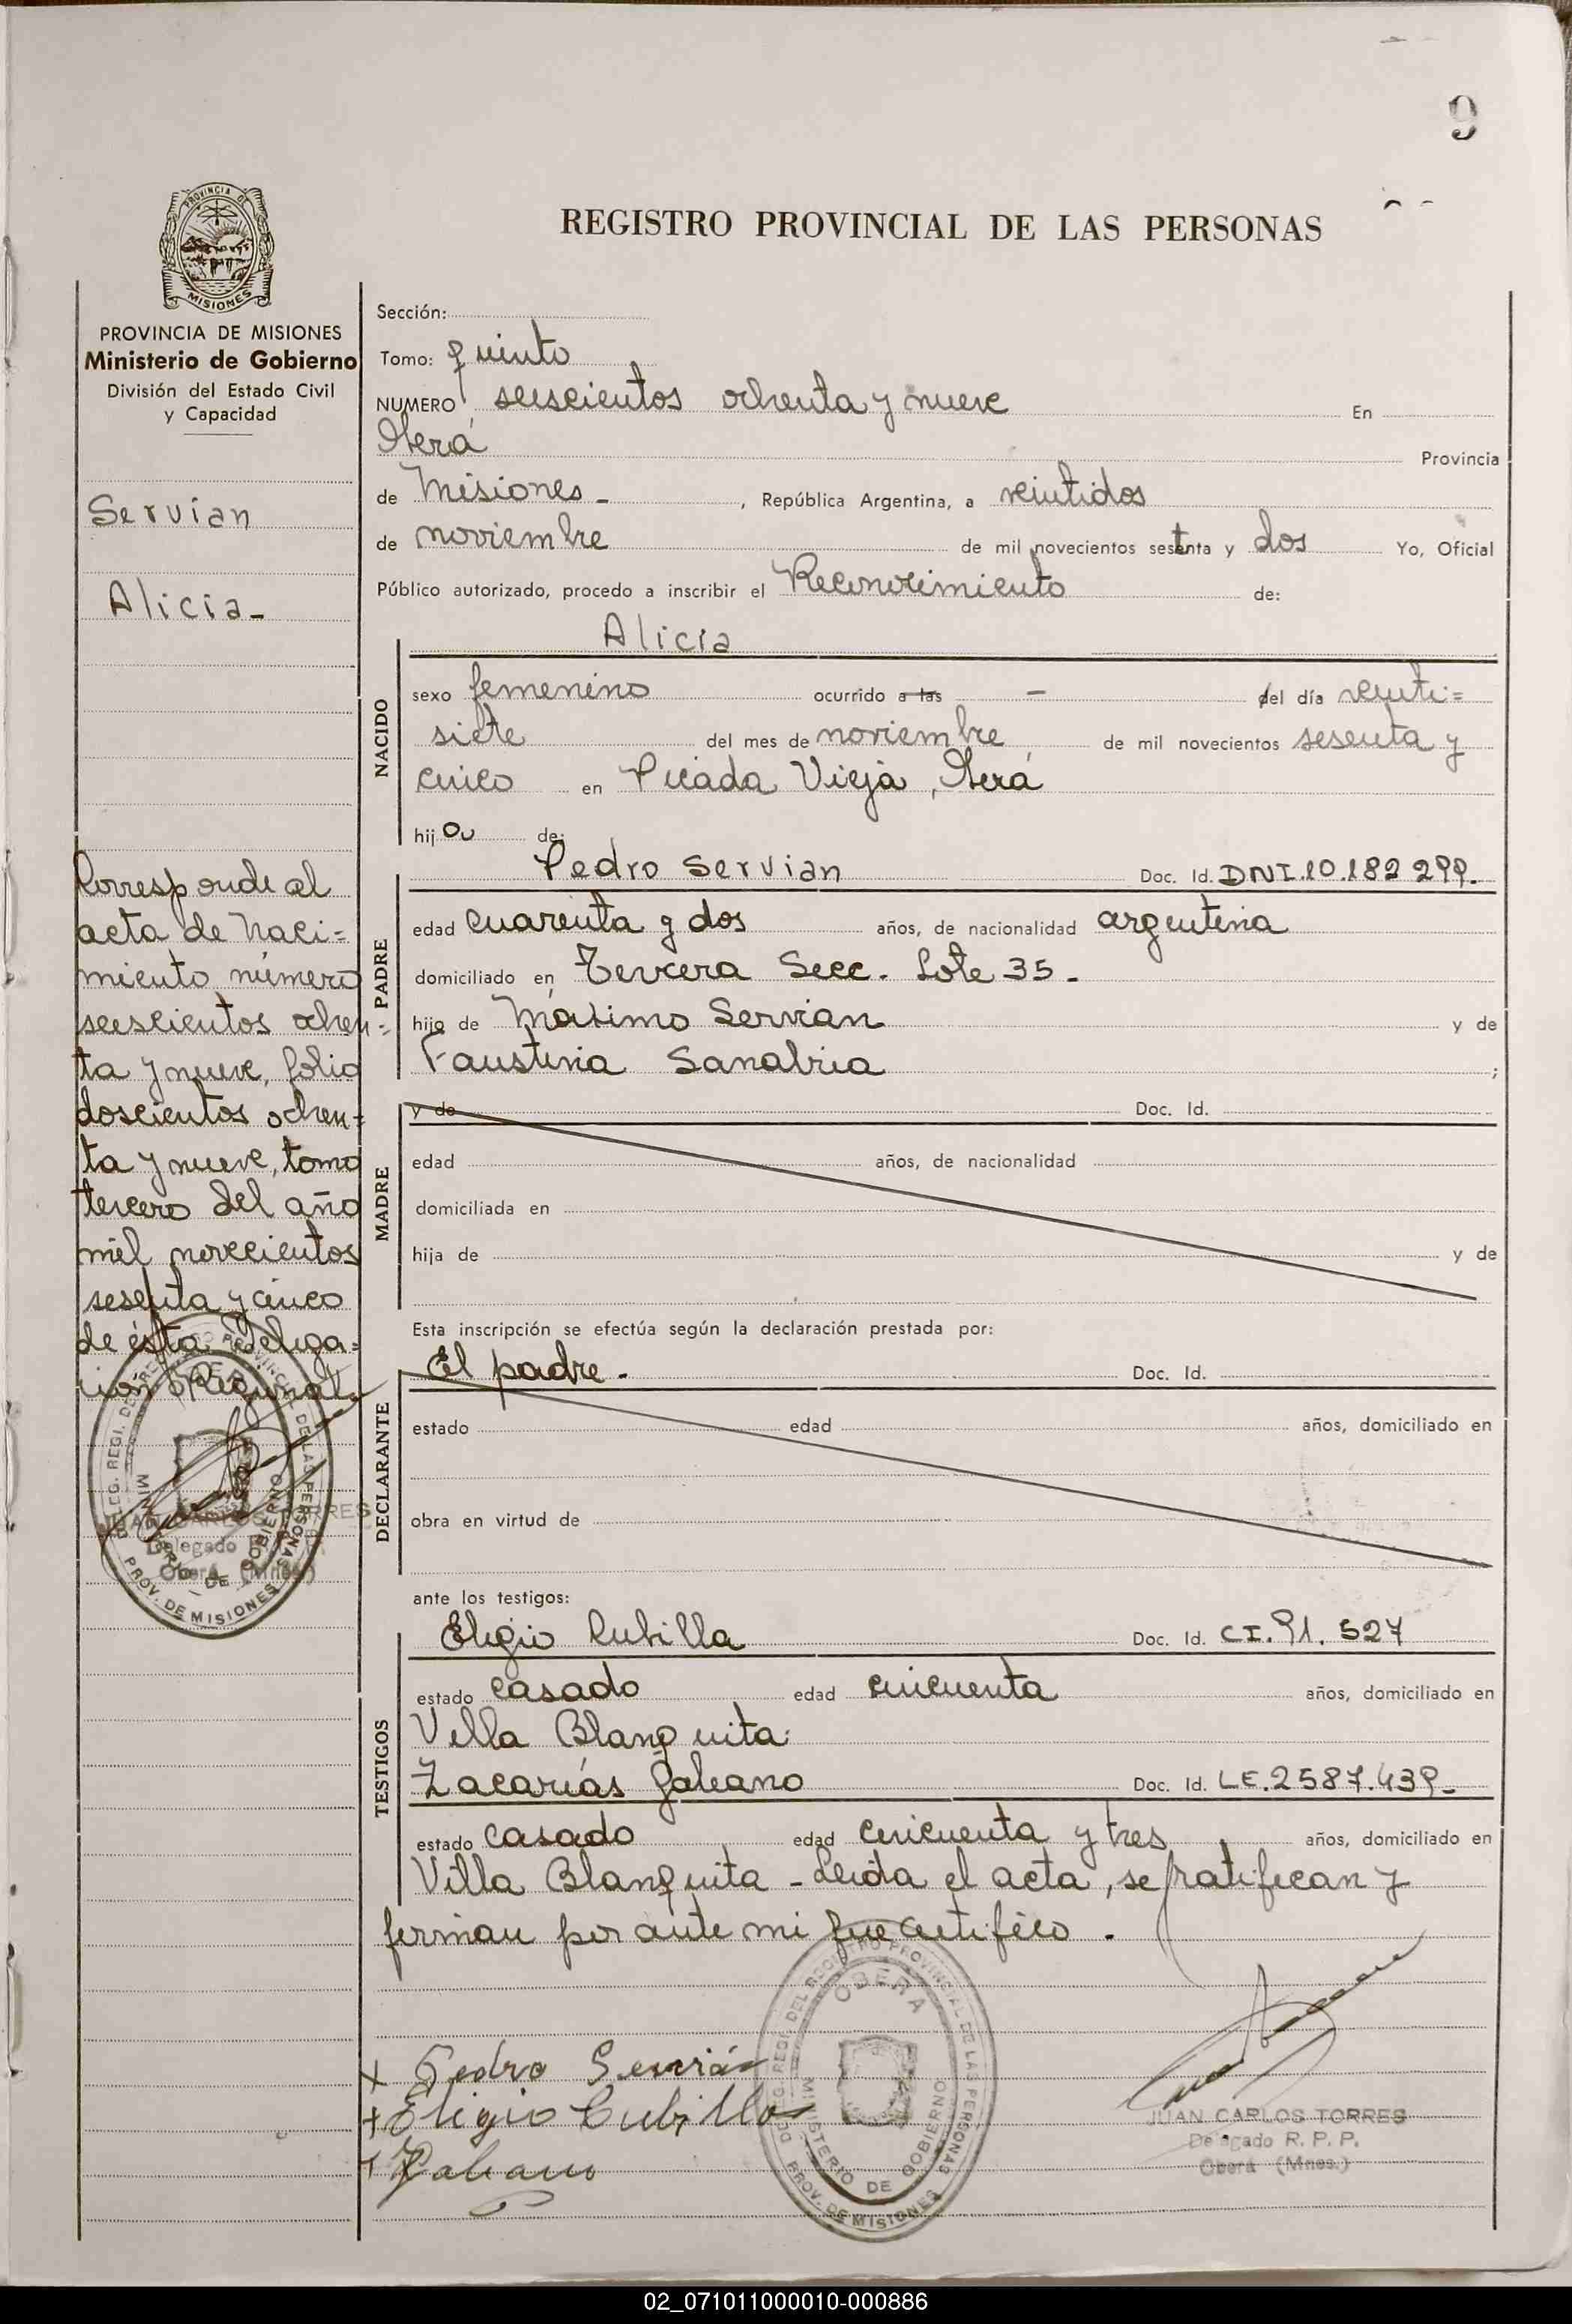 9
REGISTRO PROVINCIAL DE LAS PERSONAS
PROVINCIA DE
MISIONES
PROVINCIA DE MISIONES
Ministerio de Gobierno
División del Estado Civil
y Capacidad
Servian
Alicia-
Corresponde al
acta de naci=
miento número
seiscientos ochen=
ta y nueve, folio
doscientos ochen=
ta y nueve, tomo
tercero del año
mil novecientos
sesenta y cinco
de ésta Delega=
ción Regional
JUAN CARLOS TORRES
Delegado R. P. P.
Oberá (Mnes.)
PROV. DE MISIONES
Sección:
Tomo: quinto
NUMERO seiscientos ochenta y nueve En
Oberá Provincia
de Misiones- , República Argentina, a veintidos
de noviembre de mil novecientos setenta y dos Yo, Oficial
Público autorizado, procedo a inscribir el Reconocimiento de:
Alicia
NACIDO
sexo femenino ocurrido a las - del día veinti=
siete del mes de noviembre de mil novecientos sesenta y
cinco en Picada Vieja, Oberá
hija de:
Pedro Servian Doc. Id. DNI.10.182 299.
PADRE
edad cuarenta y dos años, de nacionalidad argentina
domiciliado en Tercera Secc. Lote 35-
hijo de Máximo Servian y de
Faustina Sanabria ;
y de Doc. Id.
MADRE
edad años, de nacionalidad
domiciliada en
hija de y de
Esta inscripción se efectúa según la declaración prestada por:
El padre- Doc. Id.
DECLARANTE
estado edad años, domiciliado en
obra en virtud de
ante los testigos:
Eligio Cubilla Doc. Id. CI.91.527
TESTIGOS
estado casado edad cincuenta años, domiciliado en
Villa Blanquita
Zacarías Galeano Doc. Id. LE.2587.439-
estado casado edad cincuenta y tres años, domiciliado en
Villa Blanquita - Leida el acta, se ratifican y
firman por ante mi que certifico.
x Pedro Servián
+ Eligio Cubilla
+ Z Galeano
DELEG. REGI. DEL REGISTRO PROVINCIAL DE LAS PERSONAS
OBERA
MINISTERIO DE GOBIERNO
PROV. DE MISIONES
JUAN CARLOS TORRES
Delegado R. P. P.
Oberá (Mnes.)
02_071011000010-000886